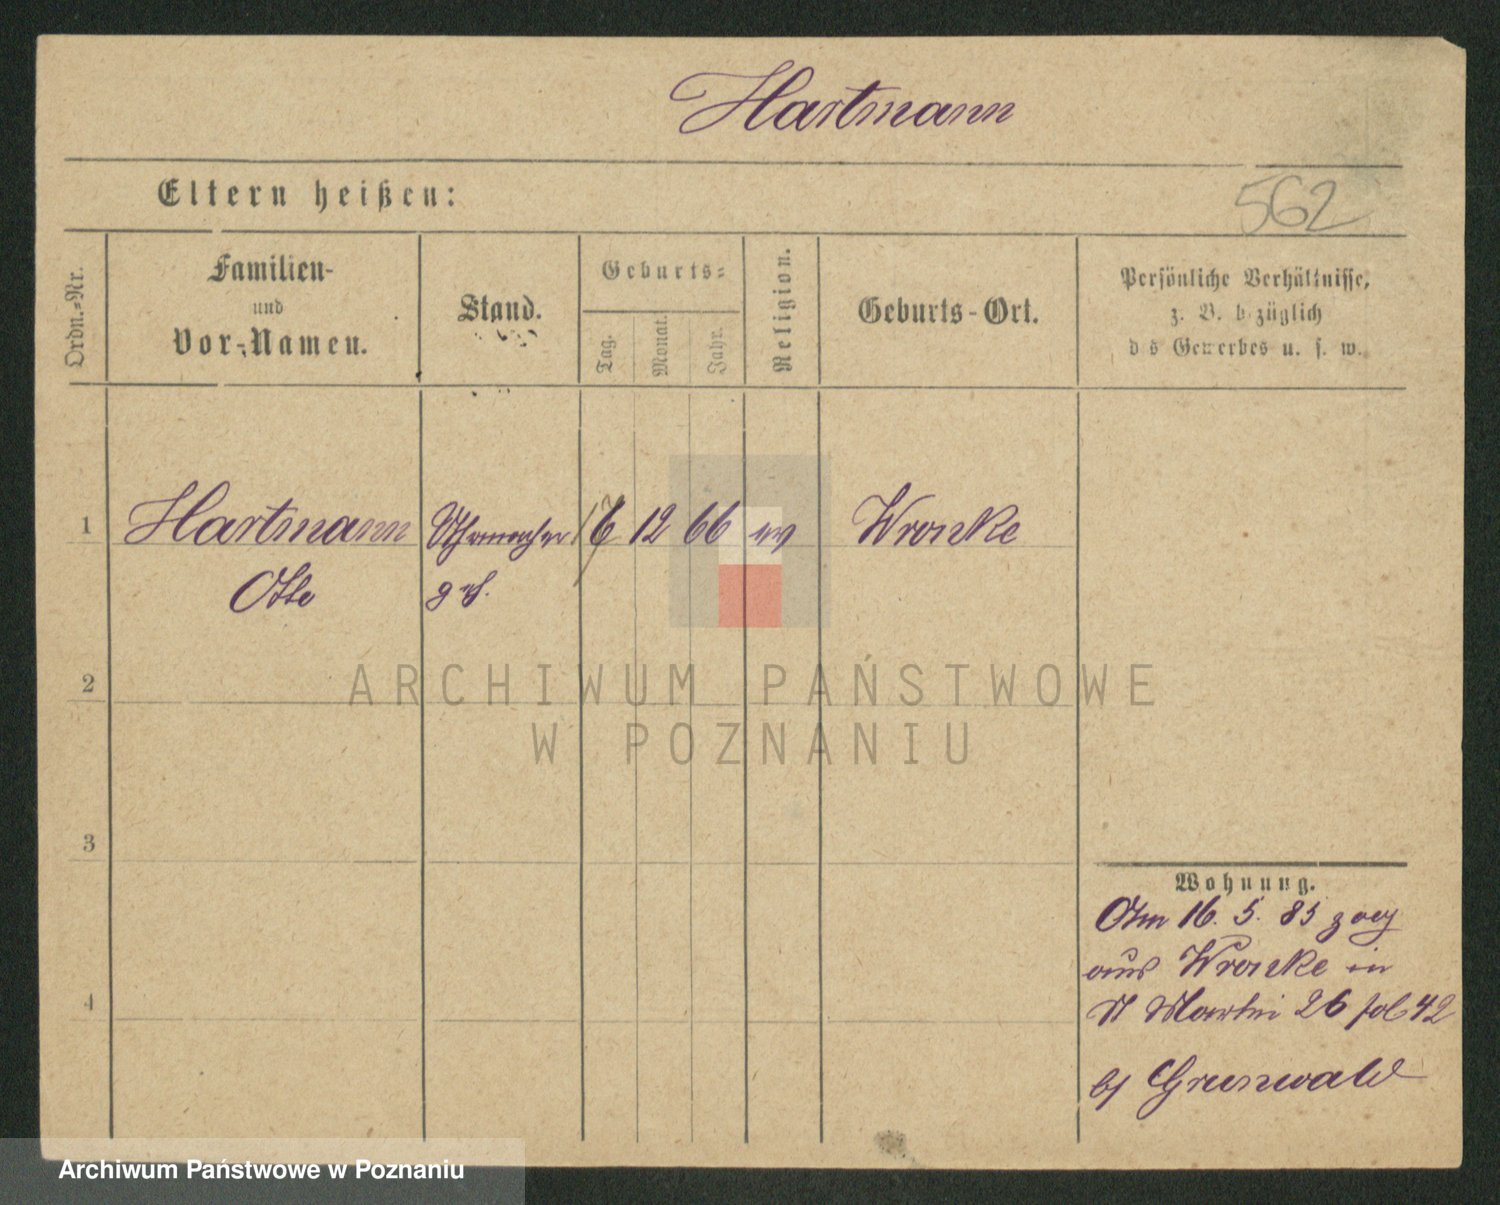 Hartmann
Eltern heißen:
562
Ordn.-Nr.
Familien-
und
Vor-Namen.
Stand.
Geburts-
Tag.
Monat.
Jahr.
Religion.
Geburts-Ort.
Persönliche Verhältnisse,
z. B. bezüglich
des Gewerbes u. s. w.
1 Hartmann Uhrmacher 16 12 66 ev Wronke
Otto
2
ARCHIWUM PAŃSTWOWE
W POZNANIU
3
Wohnung.
Am 16. 5. 85 zog
aus Wronke in
4
St Martin 26 fol 42
bj Grunwald
Archiwum Państwowe w Poznaniu